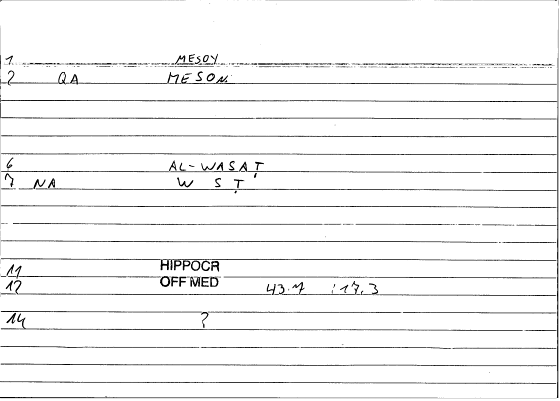 1 MESOY
2 QA MESON
6 AL-WASAṬ
7 NA W S Ṭ
11 HIPPOCR
12 OFF MED 43.7 :17.3
14 ?